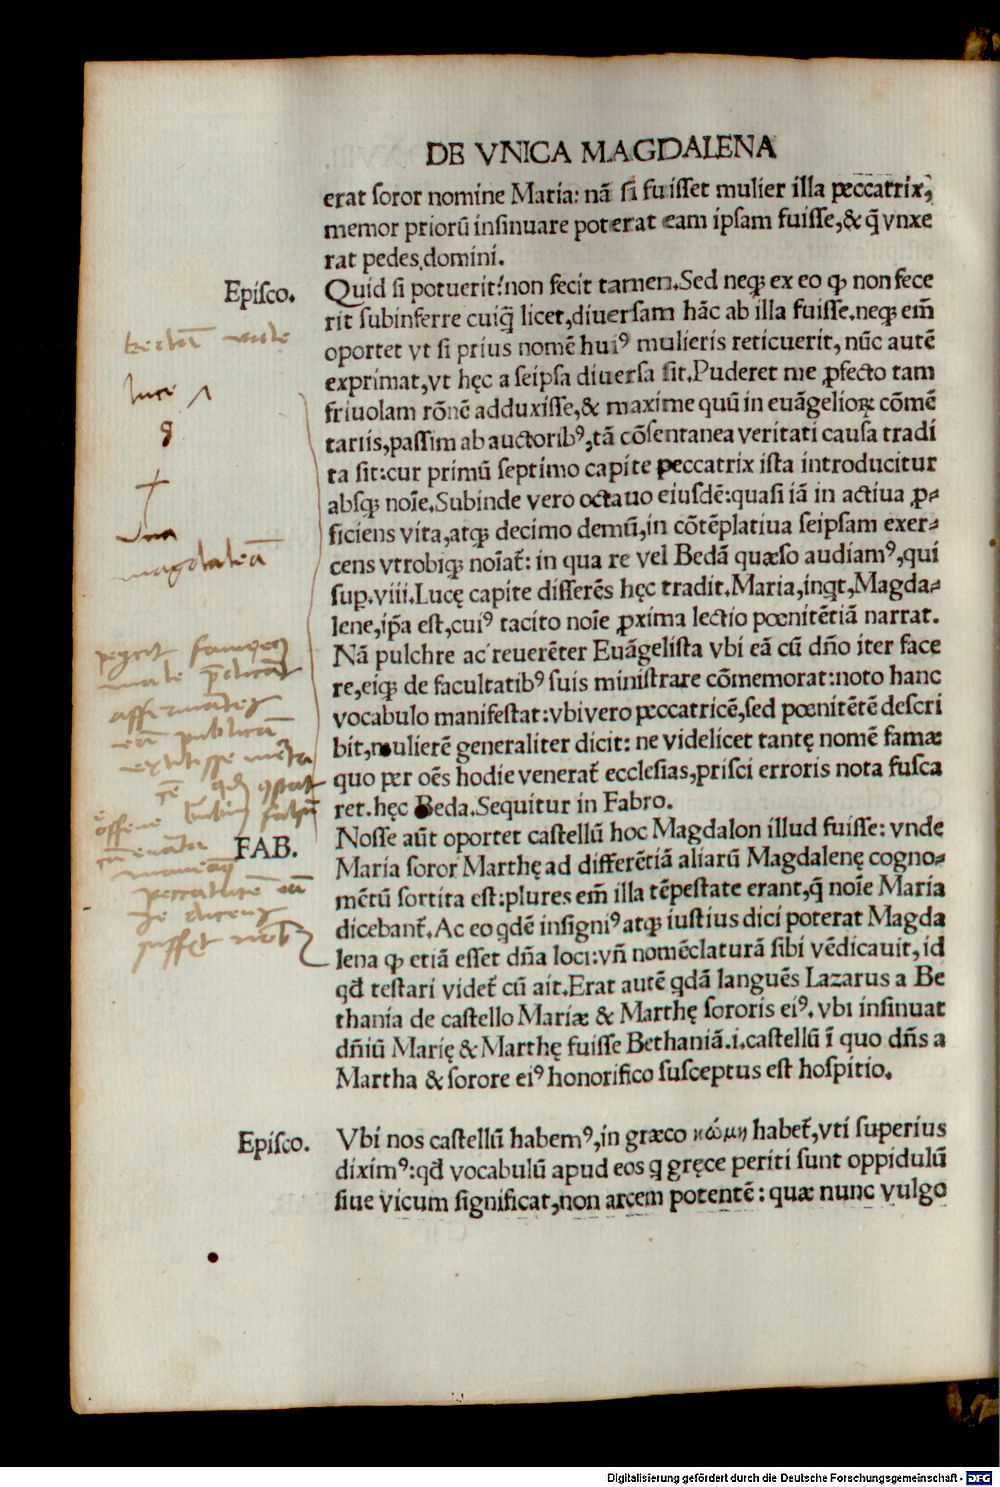 DE VNICA MAGDALENA
erat soror nomine Maria: nã si fuisset mulier illa peccatrix,
memor priorũ insinuare poterat eam ipsam fuisse,& q̃ vnxe
rat pedes domini.
Episco.
Quid si potuerit? non fecit tamen. Sed neqꝫ ex eo ꝙ non fece
rit subinferre cuiq̃ licet, diuersam hãc ab illa fuisse. neqꝫ em̃
oportet vt si prius nomẽ huiꝰ mulieris reticuerit, nũc autẽ
exprimat, vt hęc a seipsa diuersa sit. Puderet me ꝓfecto tam
friuolam rõnẽ adduxisse,& maxime quũ in euãgelioꝝ cõmẽ
tariis, passim ab auctoribꝰ, tã cõsentanea veritati causa tradi
ta sit: cur primũ septimo capite peccatrix ista introducitur
absqꝫ noĩe. Subinde vero octauo eiusdẽ: quasi iã in actiua ꝓ-
ficiens vita, atqꝫ decimo demũ, in cõtẽplatiua seipsam exer-
cens vtrobiqꝫ noĩat̃: in qua re vel Bedã quæso audiamꝰ, qui
suꝑ. viii. Lucę capite differẽs hęc tradit. Maria, inq̇t, Magda-
lene, ip̃a est, cuiꝰ tacito noĩe ꝓxima lectio pœnitẽtiã narrat.
Nã pulchre ac reuerẽter Euãgelista vbi eã cũ dño iter face
re, eiqꝫ de facultatibꝰ suis ministrare cõmemorat: noto hanc
vocabulo manifestat: vbi vero peccatricẽ, sed pœnitẽtẽ descri
bit, mulierẽ generaliter dicit: ne videlicet tantę nomẽ famæ
quo per oẽs hodie venerat̃ ecclesias, prisci erroris nota fusca
ret. hęc Beda. Sequitur in Fabro.
FAB.
Nosse aũt oportet castellũ hoc Magdalon illud fuisse: vnde
Maria soror Marthę ad differẽtiã aliarũ Magdalenę cogno-
mẽtũ sortita est: plures em̃ illa tẽpestate erant, q̃ noĩe Maria
dicebant̃. Ac eo q̇dẽ insigniꝰ atqꝫ iustius dici poterat Magda
lena ꝙ etiã esset dña loci: vñ nomẽclaturã sibi vẽdicauit, id
qđ testari videt̃ cũ ait. Erat autẽ q̇dã languẽs Lazarus a Be
thania de castello Mariæ & Marthę sororis eiꝰ. vbi insinuat
dñiũ Marię & Marthę fuisse Bethaniã .i. castellũ ĩ quo dñs a
Martha & sorore eiꝰ honorifico susceptus est hospitio.
Episco.
Vbi nos castellũ habemꝰ, in græco κώμη habet̃, vti superius
diximꝰ: qđ vocabulũ apud eos q̇ gręce periti sunt oppidulũ
siue vicum significat, non arcem potentẽ: quæ nunc vulgo
luce
8
vna
magdalẽa
Digitalisierung gefördert durch die Deutsche Forschungsgemeinschaft - DFG